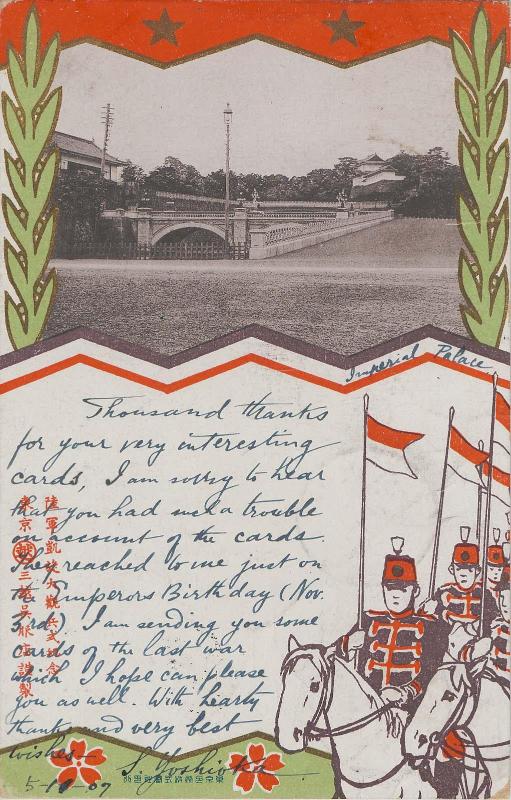 Imperial Palace
Thousand thanks
for your very interesting
cards, I am sorry to hear
that you had such a trouble
on account of the cards.
They reached to me just on
the Emperors Birthday (Nov.
3rd). I am sending you some
cards of the last war
which I hope can please
you as well. With hearty
thanks and very best
wishes—
S. Yoshioka
5-11-07
陸軍凱旋大觀兵式紀念
東京 越 三越呉服店謹製